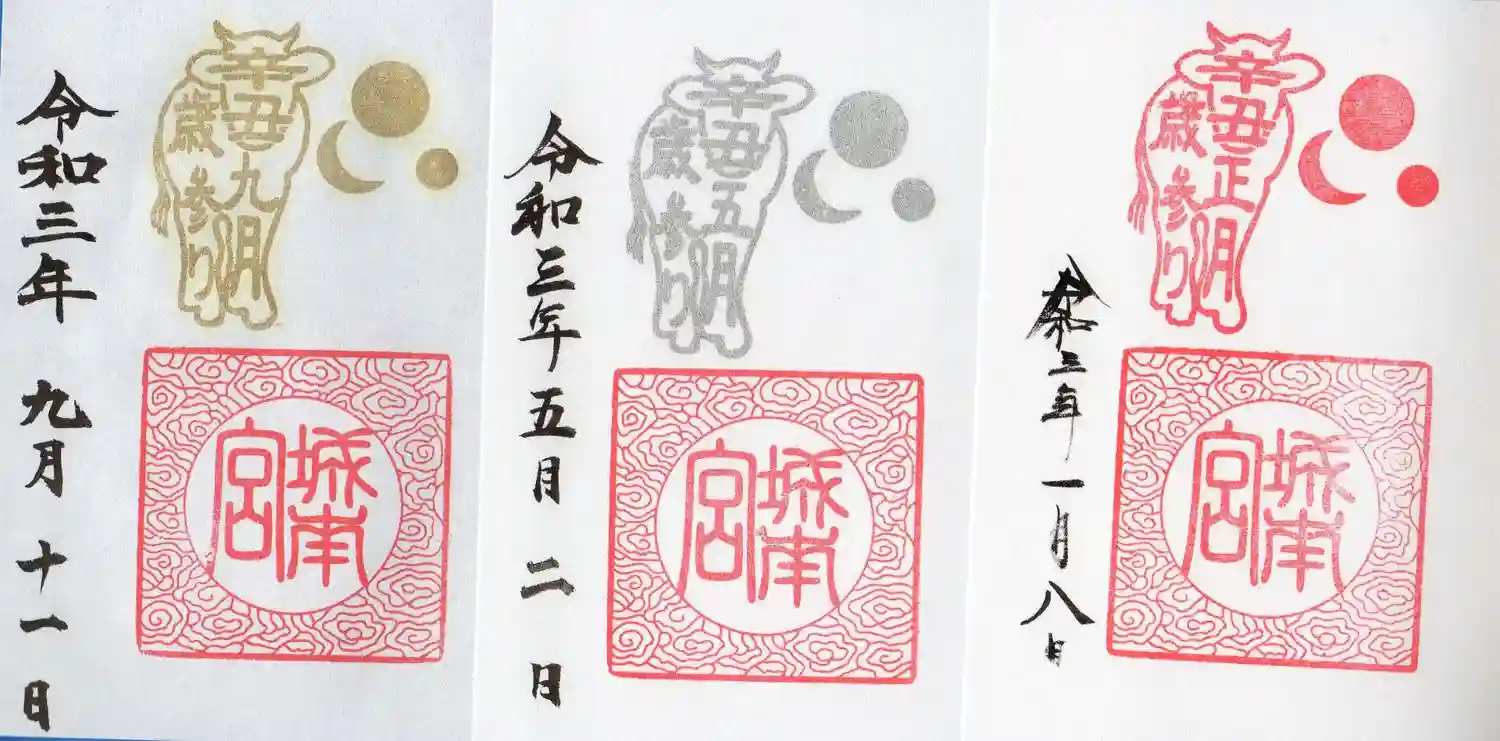 令和三年 九月 十一日
辛丑九月
歳参り
城南
宮
令和三年五月 二日
辛丑五月
歳参り
城南
宮
令和三年一月八日
辛丑正月
歳参り
城南
宮